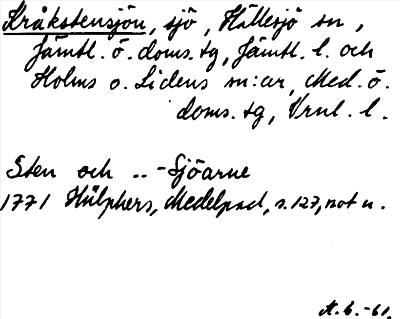 Kråkstensjön, sjö, Hällesjö sn,
Jämtl. ö. doms. tg, Jämtl. l. och
Holms o. Lidens sn:ar, Med. ö.
doms. tg, Vrnl. l.
Sten och ..-Sjöarne
1771 Hülphers, Medelpad, s. 127, not u.
A.b.-61.